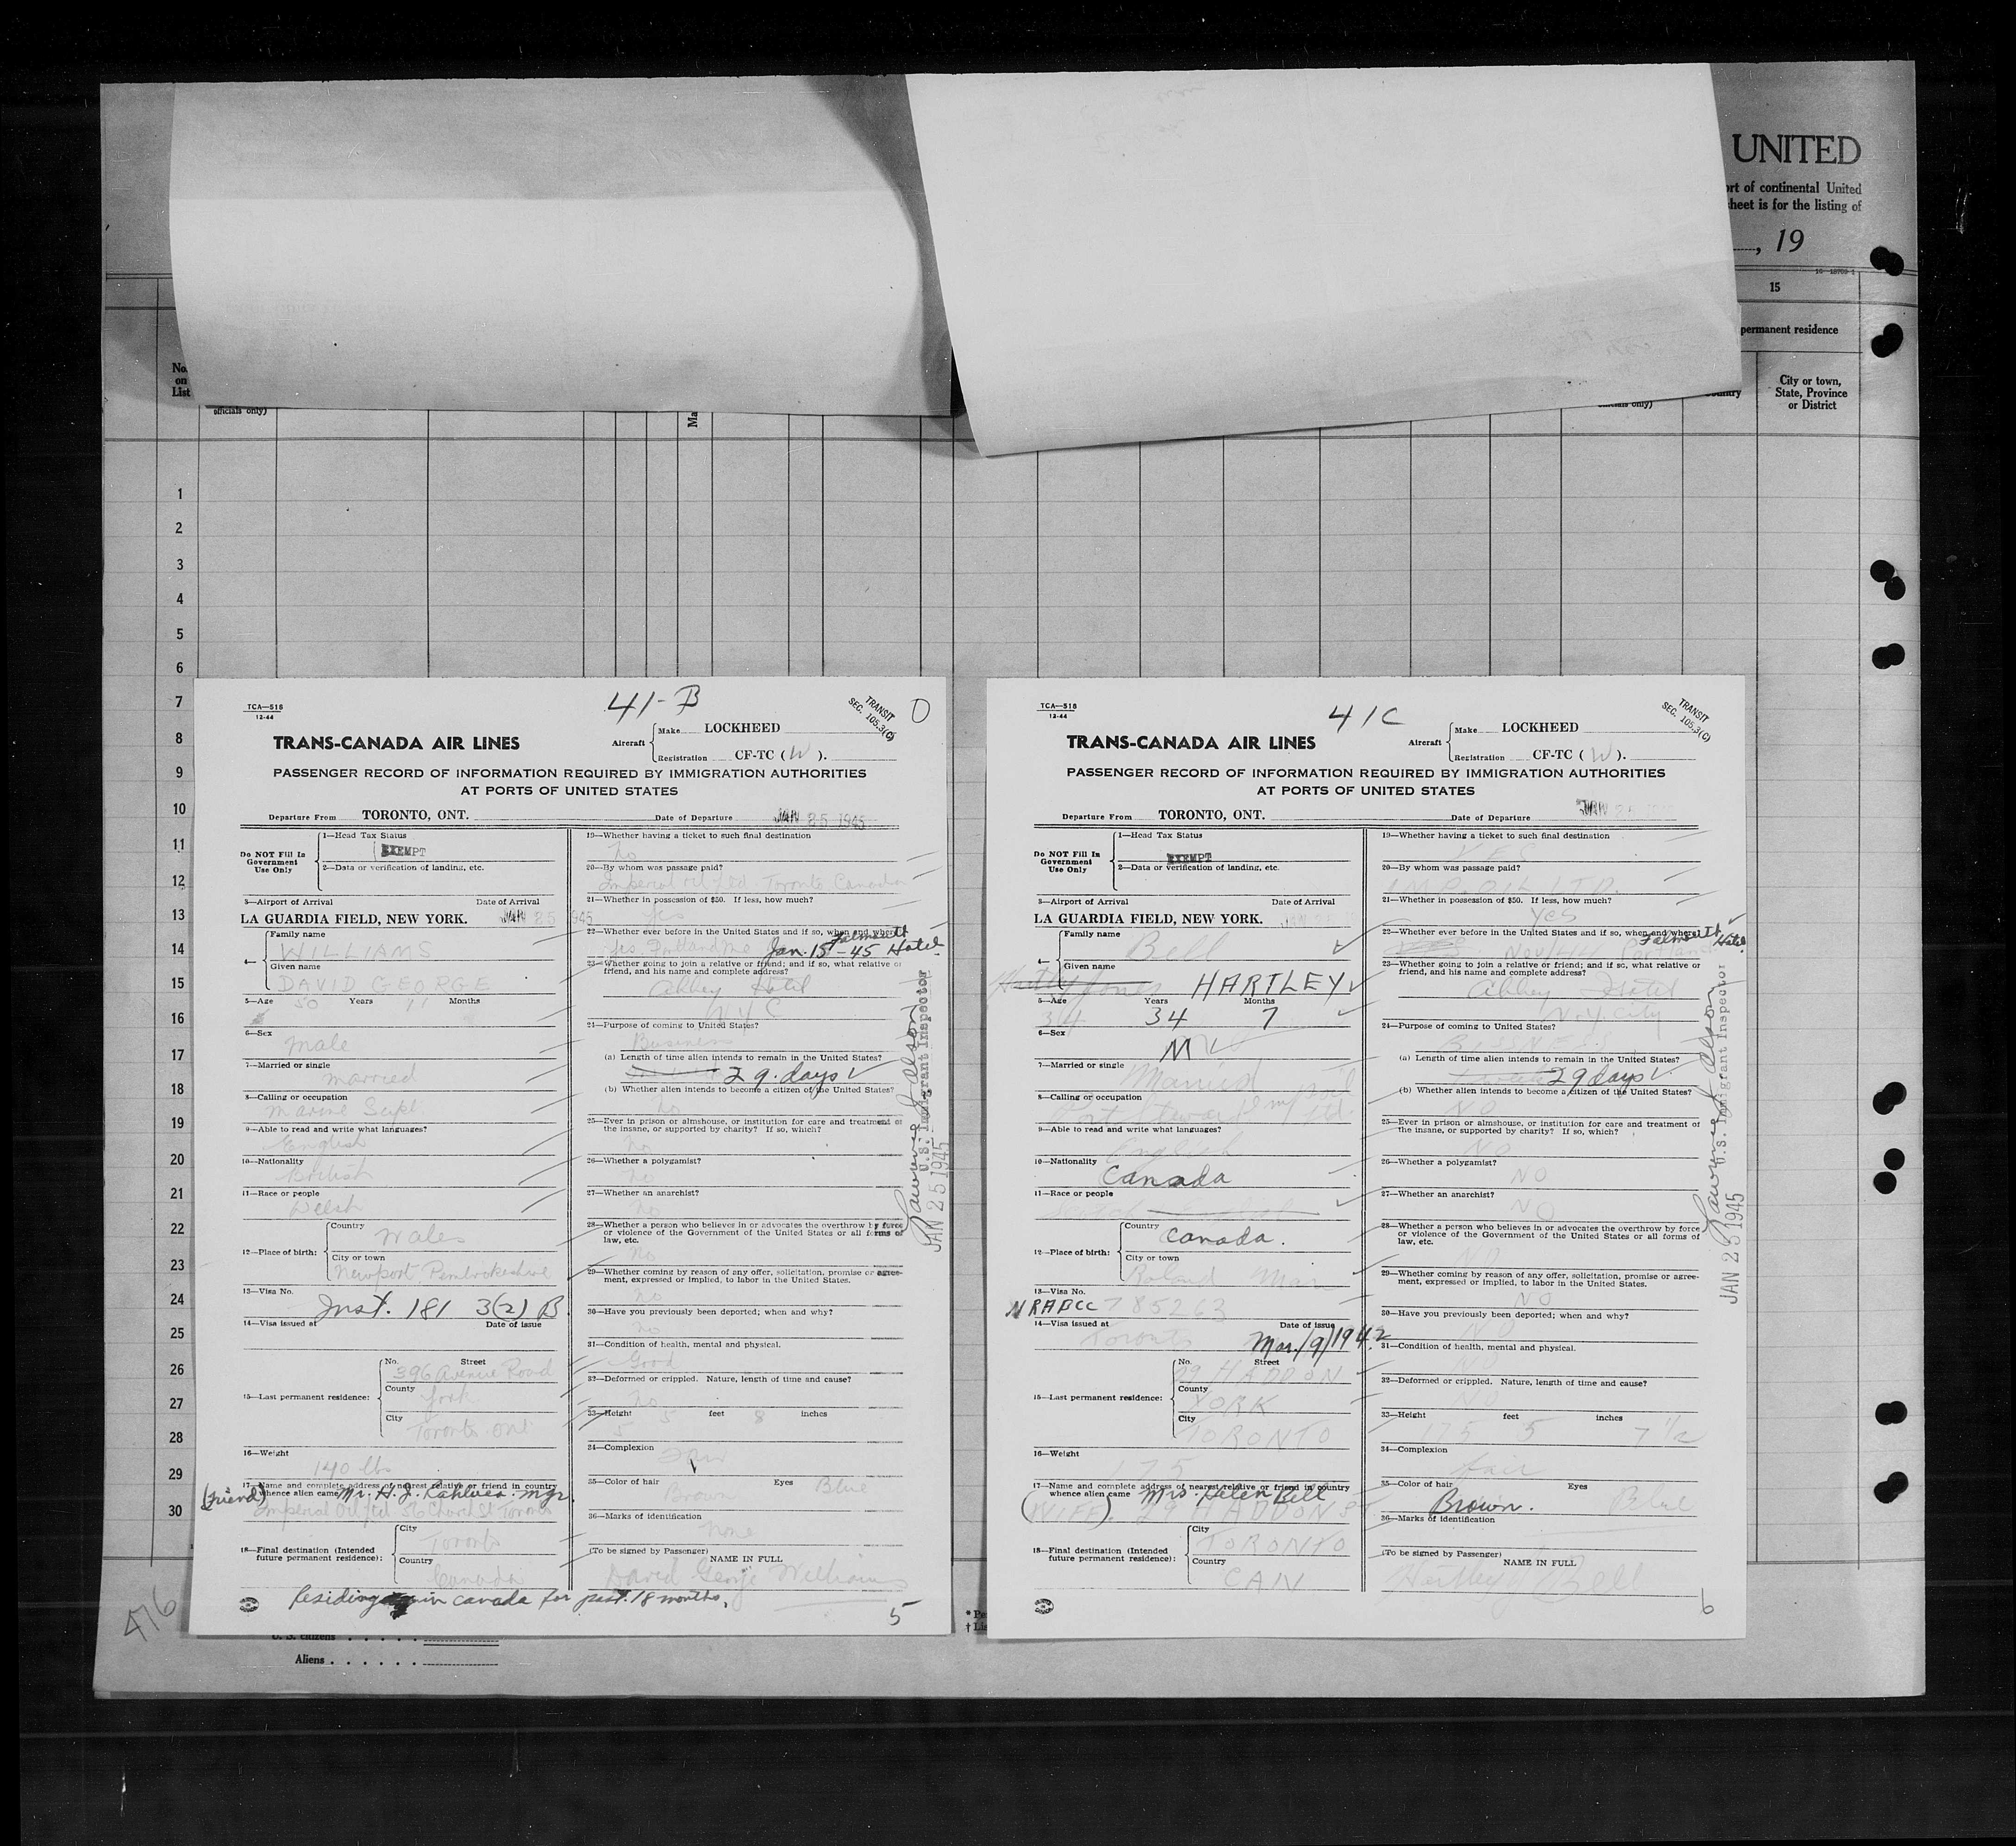 UNITED
ort of continental United
sheet is for the listing of
, 19
16—13709-1
15
permanent residence
No.
on
List
officials only)
Ma
Country
City or town,
State, Province
or District
1
2
3
4
5
6
7
8
9
10
11
12
13
14
15
16
17
18
19
20
21
22
23
24
25
26
27
28
29
30
TCA—518
12-44
41-B
TRANSIT
SEC. 105.3(C)
TRANS-CANADA AIR LINES
Aircraft
Make LOCKHEED
Registration CF-TC ( W ).
PASSENGER RECORD OF INFORMATION REQUIRED BY IMMIGRATION AUTHORITIES
AT PORTS OF UNITED STATES
Departure From TORONTO, ONT. Date of Departure JAN 25 1945
Do NOT Fill In
Government
Use Only
1—Head Tax Status
EXEMPT
2—Data or verification of landing, etc.
3—Airport of Arrival Date of Arrival
LA GUARDIA FIELD, NEW YORK. JAN 25 1945
4—
Family name
WILLIAMS
Given name
DAVID GEORGE
5—Age 50 Years 11 Months
6—Sex
Male
7—Married or single
Married
8—Calling or occupation
Marine Supt
9—Able to read and write what languages?
English
10—Nationality
British
11—Race or people
Welsh
12—Place of birth:
Country
Wales
City or town
Newport Pembrokeshire
13—Visa No.
Inst. 181 3(2) B
14—Visa issued at Date of issue
15—Last permanent residence:
No. Street
396 Avenue Road
County
York
City
Toronto Ont
16—Weight
140 lbs
17—Name and complete address of nearest relative or friend in country
whence alien came Mr. H. J. mgr.
(friend)
Imperial Oil Ltd Church St Toronto
18—Final destination (Intended
future permanent residence):
City
Toronto
Country
Canada
Residing in Canada for past 18 months.
19—Whether having a ticket to such final destination
No
20—By whom was passage paid?
Imperial Oil Ltd. Toronto Canada
21—Whether in possession of $50. If less, how much?
Yes
22—Whether ever before in the United States and if so, when and where?
Yes Portland Me Jan. 15-45 Falmouth Hotel
23—Whether going to join a relative or friend; and if so, what relative or
friend, and his name and complete address?
Abbey Hotel
N Y C
24—Purpose of coming to United States?
Business
(a) Length of time alien intends to remain in the United States?
29 days
(b) Whether alien intends to become a citizen of the United States?
No
25—Ever in prison or almshouse, or institution for care and treatment of
the insane, or supported by charity? If so, which?
No
26—Whether a polygamist?
No
27—Whether an anarchist?
No
28—Whether a person who believes in or advocates the overthrow by force
or violence of the Government of the United States or all forms of
law, etc.
No
29—Whether coming by reason of any offer, solicitation, promise or agree-
ment, expressed or implied, to labor in the United States.
No
30—Have you previously been deported; when and why?
No
31—Condition of health, mental and physical.
Good
32—Deformed or crippled. Nature, length of time and cause?
No
33—Height 5 feet 8 inches
34—Complexion
35—Color of hair Brown Eyes Blue
36—Marks of identification
None
(To be signed by Passenger) NAME IN FULL
David George Williams
5
U.S. Immigrant Inspector
JAN 25 1945
TCA—518
12-44
41C
TRANSIT
SEC. 105.3(C)
TRANS-CANADA AIR LINES
Aircraft
Make LOCKHEED
Registration CF-TC ( W ).
PASSENGER RECORD OF INFORMATION REQUIRED BY IMMIGRATION AUTHORITIES
AT PORTS OF UNITED STATES
Departure From TORONTO, ONT. Date of Departure JAN 25
Do NOT Fill In
Government
Use Only
1—Head Tax Status
EXEMPT
2—Data or verification of landing, etc.
3—Airport of Arrival Date of Arrival
LA GUARDIA FIELD, NEW YORK. JAN 25
4—
Family name
Bell
Given name
Hartley Jones HARTLEY
5—Age Years Months
34 34 7
6—Sex
M
7—Married or single
Married
8—Calling or occupation
9—Able to read and write what languages?
English
10—Nationality
Canada
11—Race or people
Scotch
12—Place of birth:
Country
Canada.
City or town
Roland Man
13—Visa No.
NRABCC 785263
14—Visa issued at Date of issue
Toronto Mar/9/1942
15—Last permanent residence:
No. Street
29 HADDON
County
YORK
City
TORONTO
16—Weight
175
17—Name and complete address of nearest relative or friend in country
whence alien came Mrs. Helen Bell
(WIFE) 29 HADDON ST
18—Final destination (Intended
future permanent residence):
City
TORONTO
Country
CAN
19—Whether having a ticket to such final destination
YES
20—By whom was passage paid?
IMP. OIL LTD.
21—Whether in possession of $50. If less, how much?
Yes
22—Whether ever before in the United States and if so, when and where?
Nov/44 Portland Falmouth Hotel
23—Whether going to join a relative or friend; and if so, what relative or
friend, and his name and complete address?
Abbey Hotel
N.Y. City
24—Purpose of coming to United States?
(a) Length of time alien intends to remain in the United States?
29 days
(b) Whether alien intends to become a citizen of the United States?
NO
25—Ever in prison or almshouse, or institution for care and treatment of
the insane, or supported by charity? If so, which?
NO
26—Whether a polygamist?
NO
27—Whether an anarchist?
NO
28—Whether a person who believes in or advocates the overthrow by force
or violence of the Government of the United States or all forms of
law, etc.
NO
29—Whether coming by reason of any offer, solicitation, promise or agree-
ment, expressed or implied, to labor in the United States.
NO
30—Have you previously been deported; when and why?
NO
31—Condition of health, mental and physical.
32—Deformed or crippled. Nature, length of time and cause?
NO
33—Height feet inches
175 5 7 1/2
34—Complexion
fair
35—Color of hair Eyes
Brown. Blue
36—Marks of identification
(To be signed by Passenger) NAME IN FULL
Hartley Bell
6
U.S. Immigrant Inspector
JAN 25 1945
476
U. S. citizens
Aliens
* Pe
† Lis